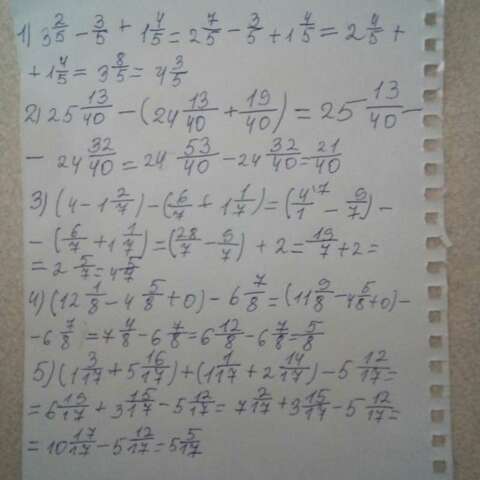 1) 3 2/5 - 3/5 + 1 4/5 = 2 7/5 - 3/5 + 1 4/5 = 2 4/5 +
+ 1 4/5 = 3 8/5 = 4 3/5
2) 25 13/40 - (24 13/40 + 19/40) = 25 13/40 -
- 24 32/40 = 24 53/40 - 24 32/40 = 21/40
3) (4 - 1 2/7) - (6/7 + 1 1/7) = (4/1 ⁷ - 9/7) -
- (6/7 + 1 1/7) = (28/7 - 9/7) + 2 = 19/7 + 2 =
= 2 5/7 = 4 5/7
4) (12 1/8 - 4 5/8 + 0) - 6 7/8 = (11 9/8 - 4 5/8 + 0) -
- 6 7/8 = 7 4/8 - 6 7/8 = 6 12/8 - 6 7/8 = 5/8
5) (1 3/17 + 5 16/17) + (1 1/17 + 2 14/17) - 5 12/17 =
= 6 19/17 + 3 15/17 - 5 12/17 = 7 2/17 + 3 15/17 - 5 12/17 =
= 10 17/17 - 5 12/17 = 5 5/17